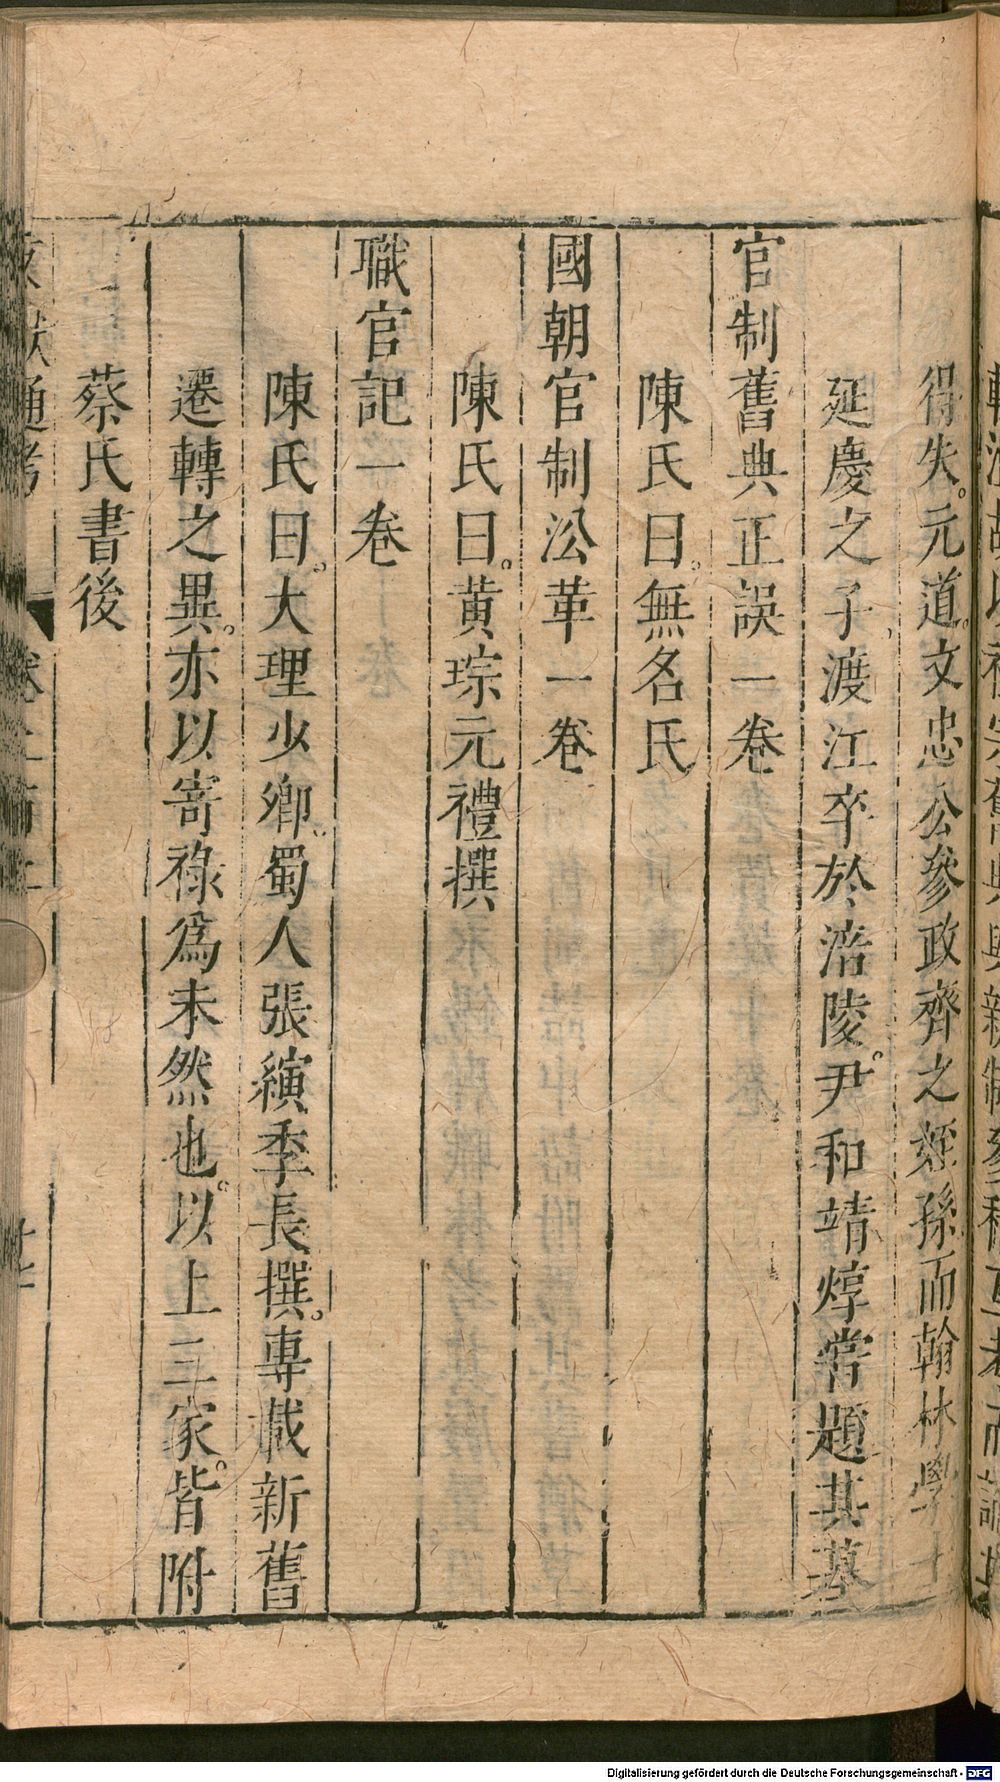 得失元道文忠公參政齊之姪孫而翰林學士
延慶之子渡江卒於涪陵尹和靖焞嘗題其墓
官制舊典正誤一卷
陳氏曰無名氏
國朝官制沿革一卷
陳氏曰黄琮元禮撰
職官記一卷
陳氏曰大理少卿蜀人張縯季長撰專載新舊
遷轉之異亦以寄祿為未然也以上三家皆附
蔡氏書後
獻通考
Digitalisierung gefördert durch die Deutsche Forschungsgemeinschaft - DFG